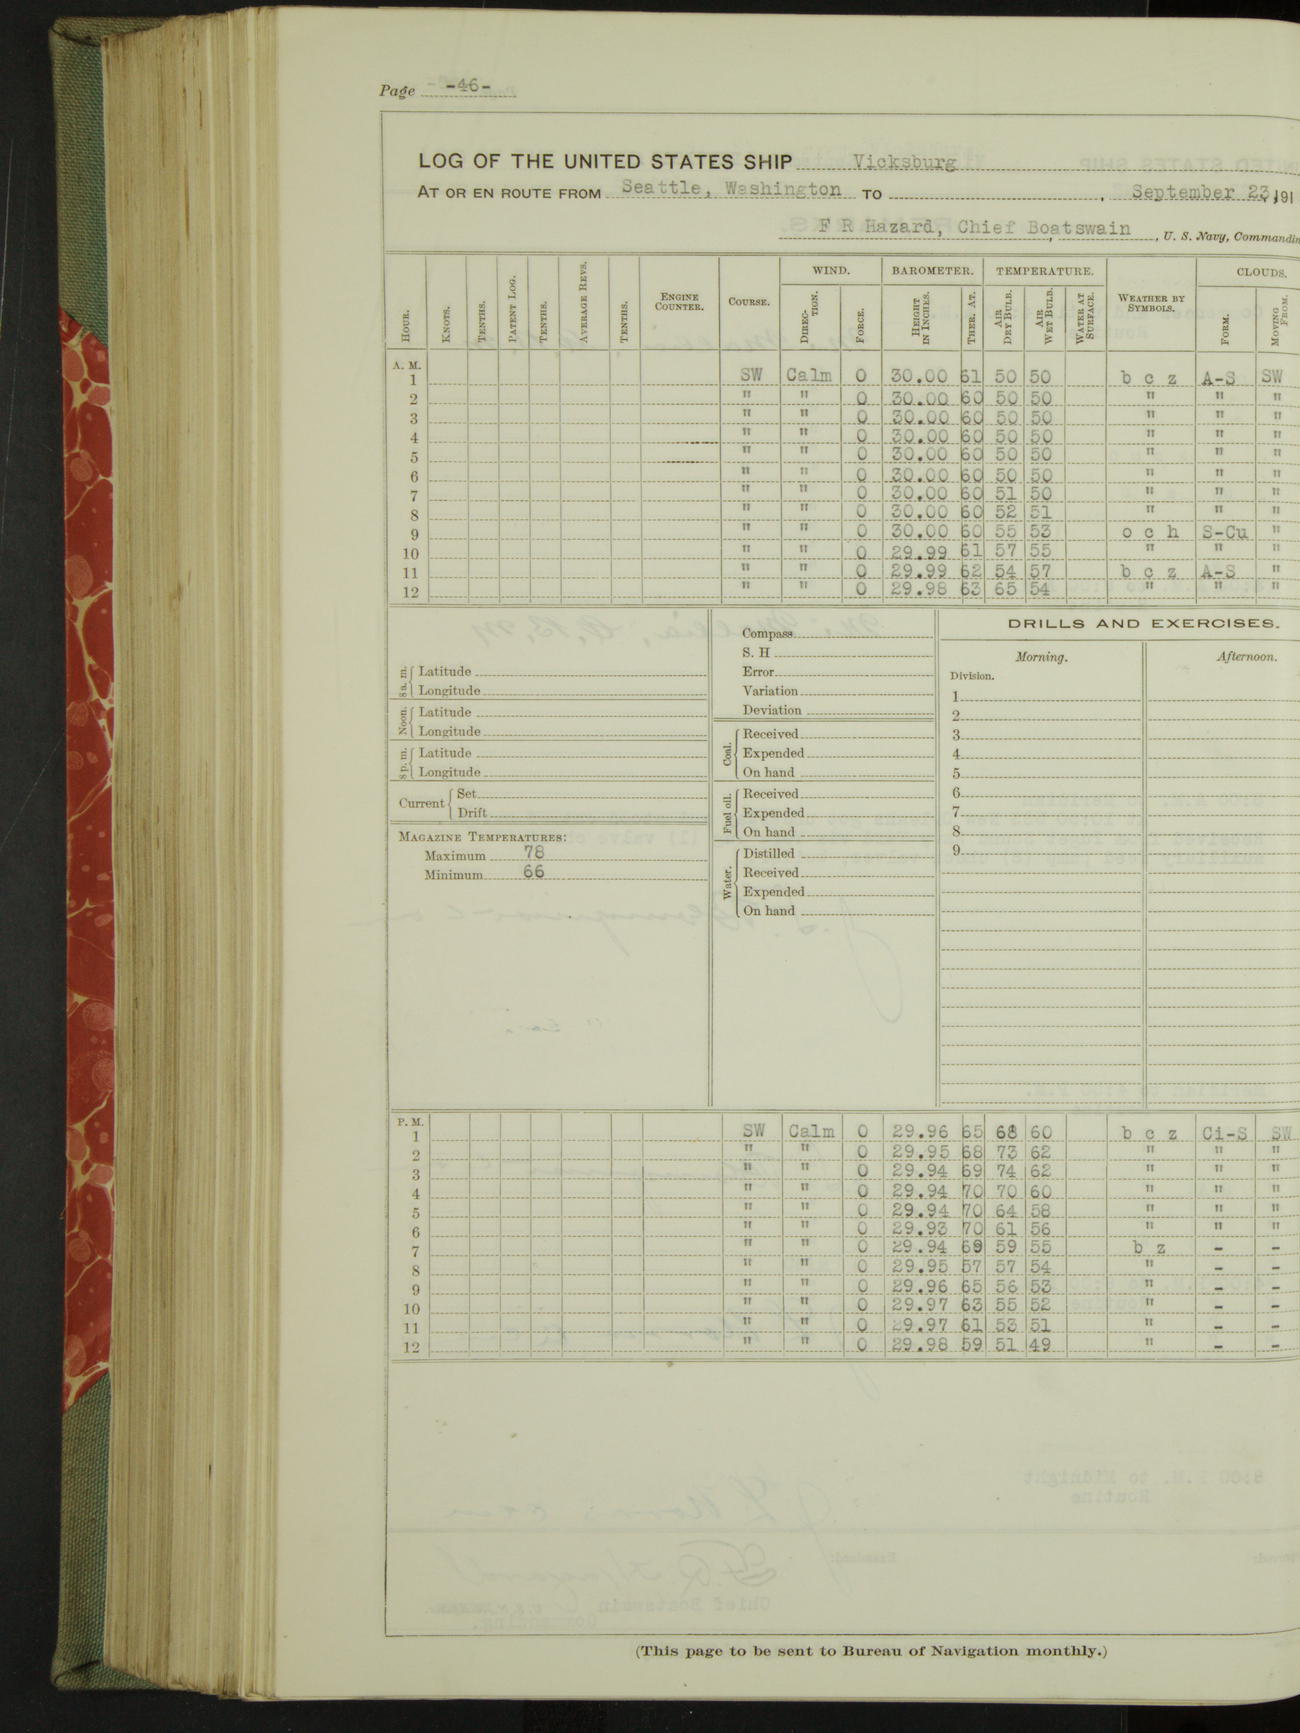 Page -46-
LOG OF THE UNITED STATES SHIP Vicksburg
AT OR EN ROUTE FROM Seattle, Washington TO , September 23, 191
F R Hazard, Chief Boatswain , U. S. Navy, Commandin
HOUR. KNOTS. TENTHS. PATENT LOG. TENTHS. AVERAGE REVS. TENTHS. ENGINE COUNTER. COURSE. WIND. DIRECTION. FORCE. BAROMETER. HEIGHT IN INCHES. THER. AT. TEMPERATURE. AIR DRY BULB. AIR WET BULB. WATER AT SURFACE. WEATHER BY SYMBOLS. CLOUDS. FORM. MOVING FROM.
A. M.
1 SW Calm 0 30.00 61 50 50 b c z A-S SW
2 " " 0 30.00 60 50 50 " " "
3 " " 0 30.00 60 50 50 " " "
4 " " 0 30.00 60 50 50 " " "
5 " " 0 30.00 60 50 50 " " "
6 " " 0 30.00 60 50 50 " " "
7 " " 0 30.00 60 51 50 " " "
8 " " 0 30.00 60 52 51 " " "
9 " " 0 30.00 60 55 53 o c h S-Cu "
10 " " 0 29.99 61 57 55 " " "
11 " " 0 29.99 62 54 57 b c z A-S "
12 " " 0 29.98 63 65 54 " " "
8 a. m. Latitude
Longitude
Noon. Latitude
Longitude
8 p. m. Latitude
Longitude
Current Set
Drift
MAGAZINE TEMPERATURES:
Maximum 78
Minimum 66
Compass
S. H
Error
Variation
Deviation
Coal. Received
Expended
On hand
Fuel oil. Received
Expended
On hand
Water. Distilled
Received
Expended
On hand
DRILLS AND EXERCISES.
Morning. Afternoon.
Division.
1
2
3
4
5
6
7
8
9
P. M.
1 SW Calm 0 29.96 65 68 60 b c z Ci-S SW
2 " " 0 29.95 68 73 62 " " "
3 " " 0 29.94 69 74 62 " " "
4 " " 0 29.94 70 70 60 " " "
5 " " 0 29.94 70 64 58 " " "
6 " " 0 29.93 70 61 56 " " "
7 " " 0 29.94 69 59 55 b z - -
8 " " 0 29.95 57 57 54 " - -
9 " " 0 29.96 65 56 53 " - -
10 " " 0 29.97 63 55 52 " - -
11 " " 0 29.97 61 53 51 " - -
12 " " 0 29.98 59 51 49 " - -
(This page to be sent to Bureau of Navigation monthly.)